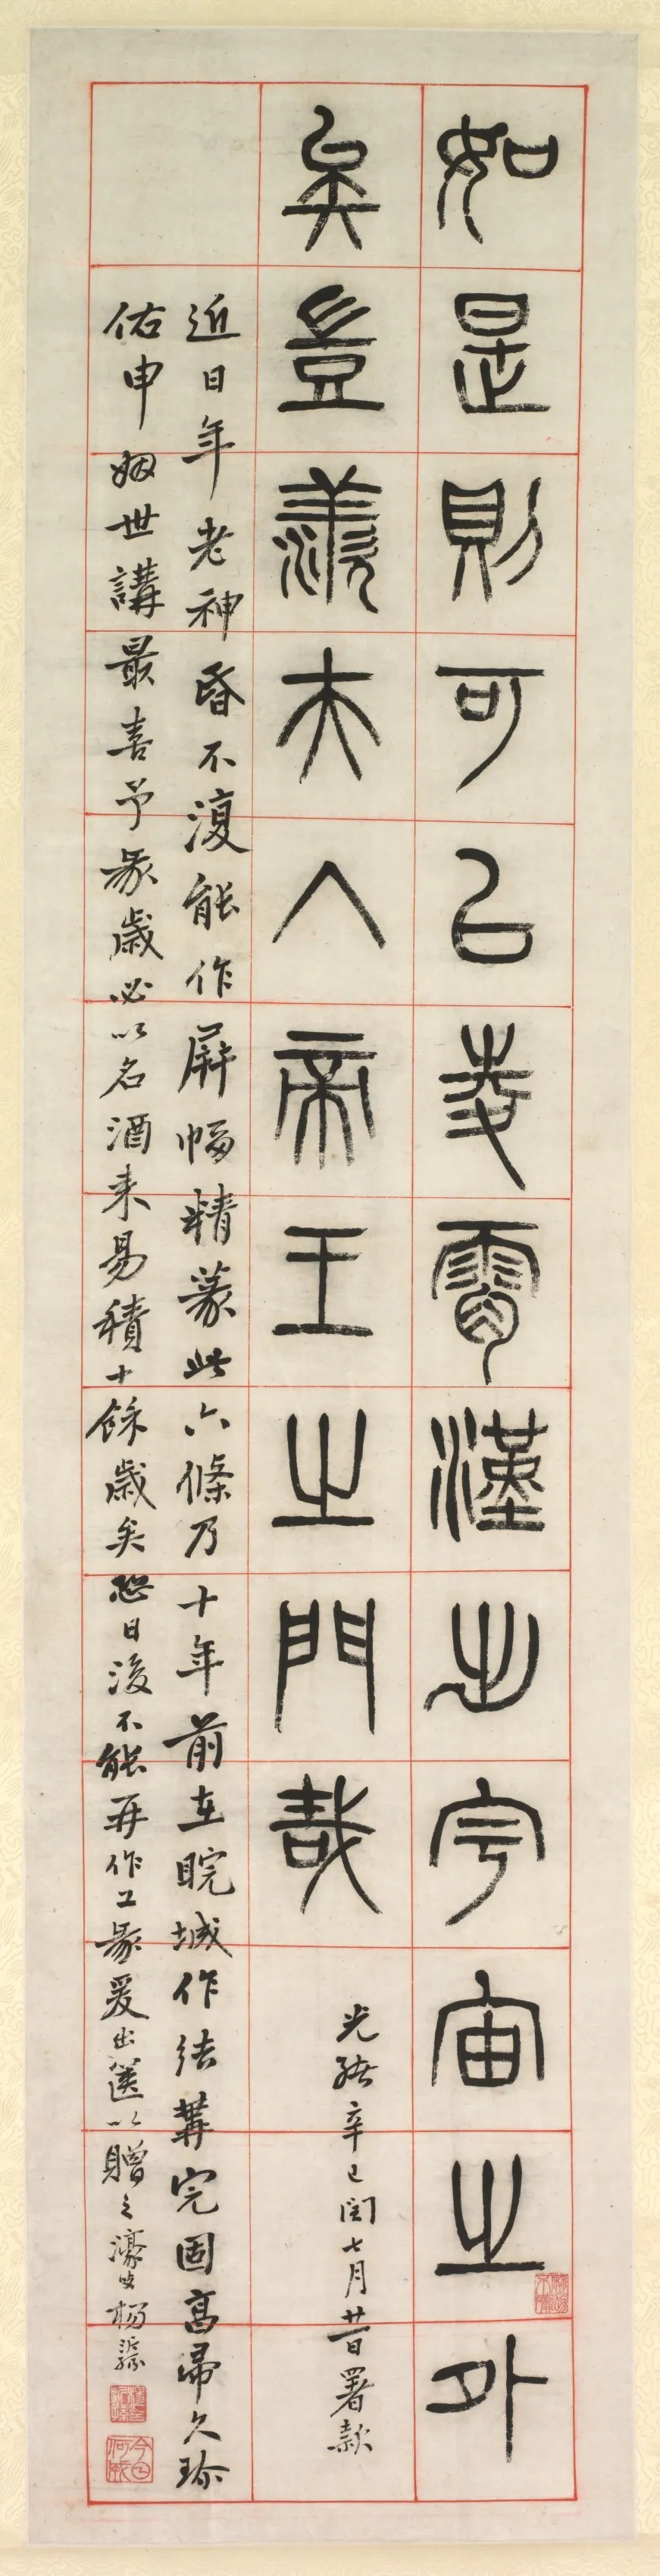 如是則可以夌霄漢出宇宙之外
矣豈羨夫入帝王之門哉
光緒辛巳閏七月廿日署款
近日年老神昏不復能作屏幅精篆此六條乃十年前在皖城作結構完固高帚久珎
佑申姻世講最喜予篆歲必以名酒来易積十餘歲矣恐日後不能再作工篆爰出篋以贈之濠叟楊沂孫